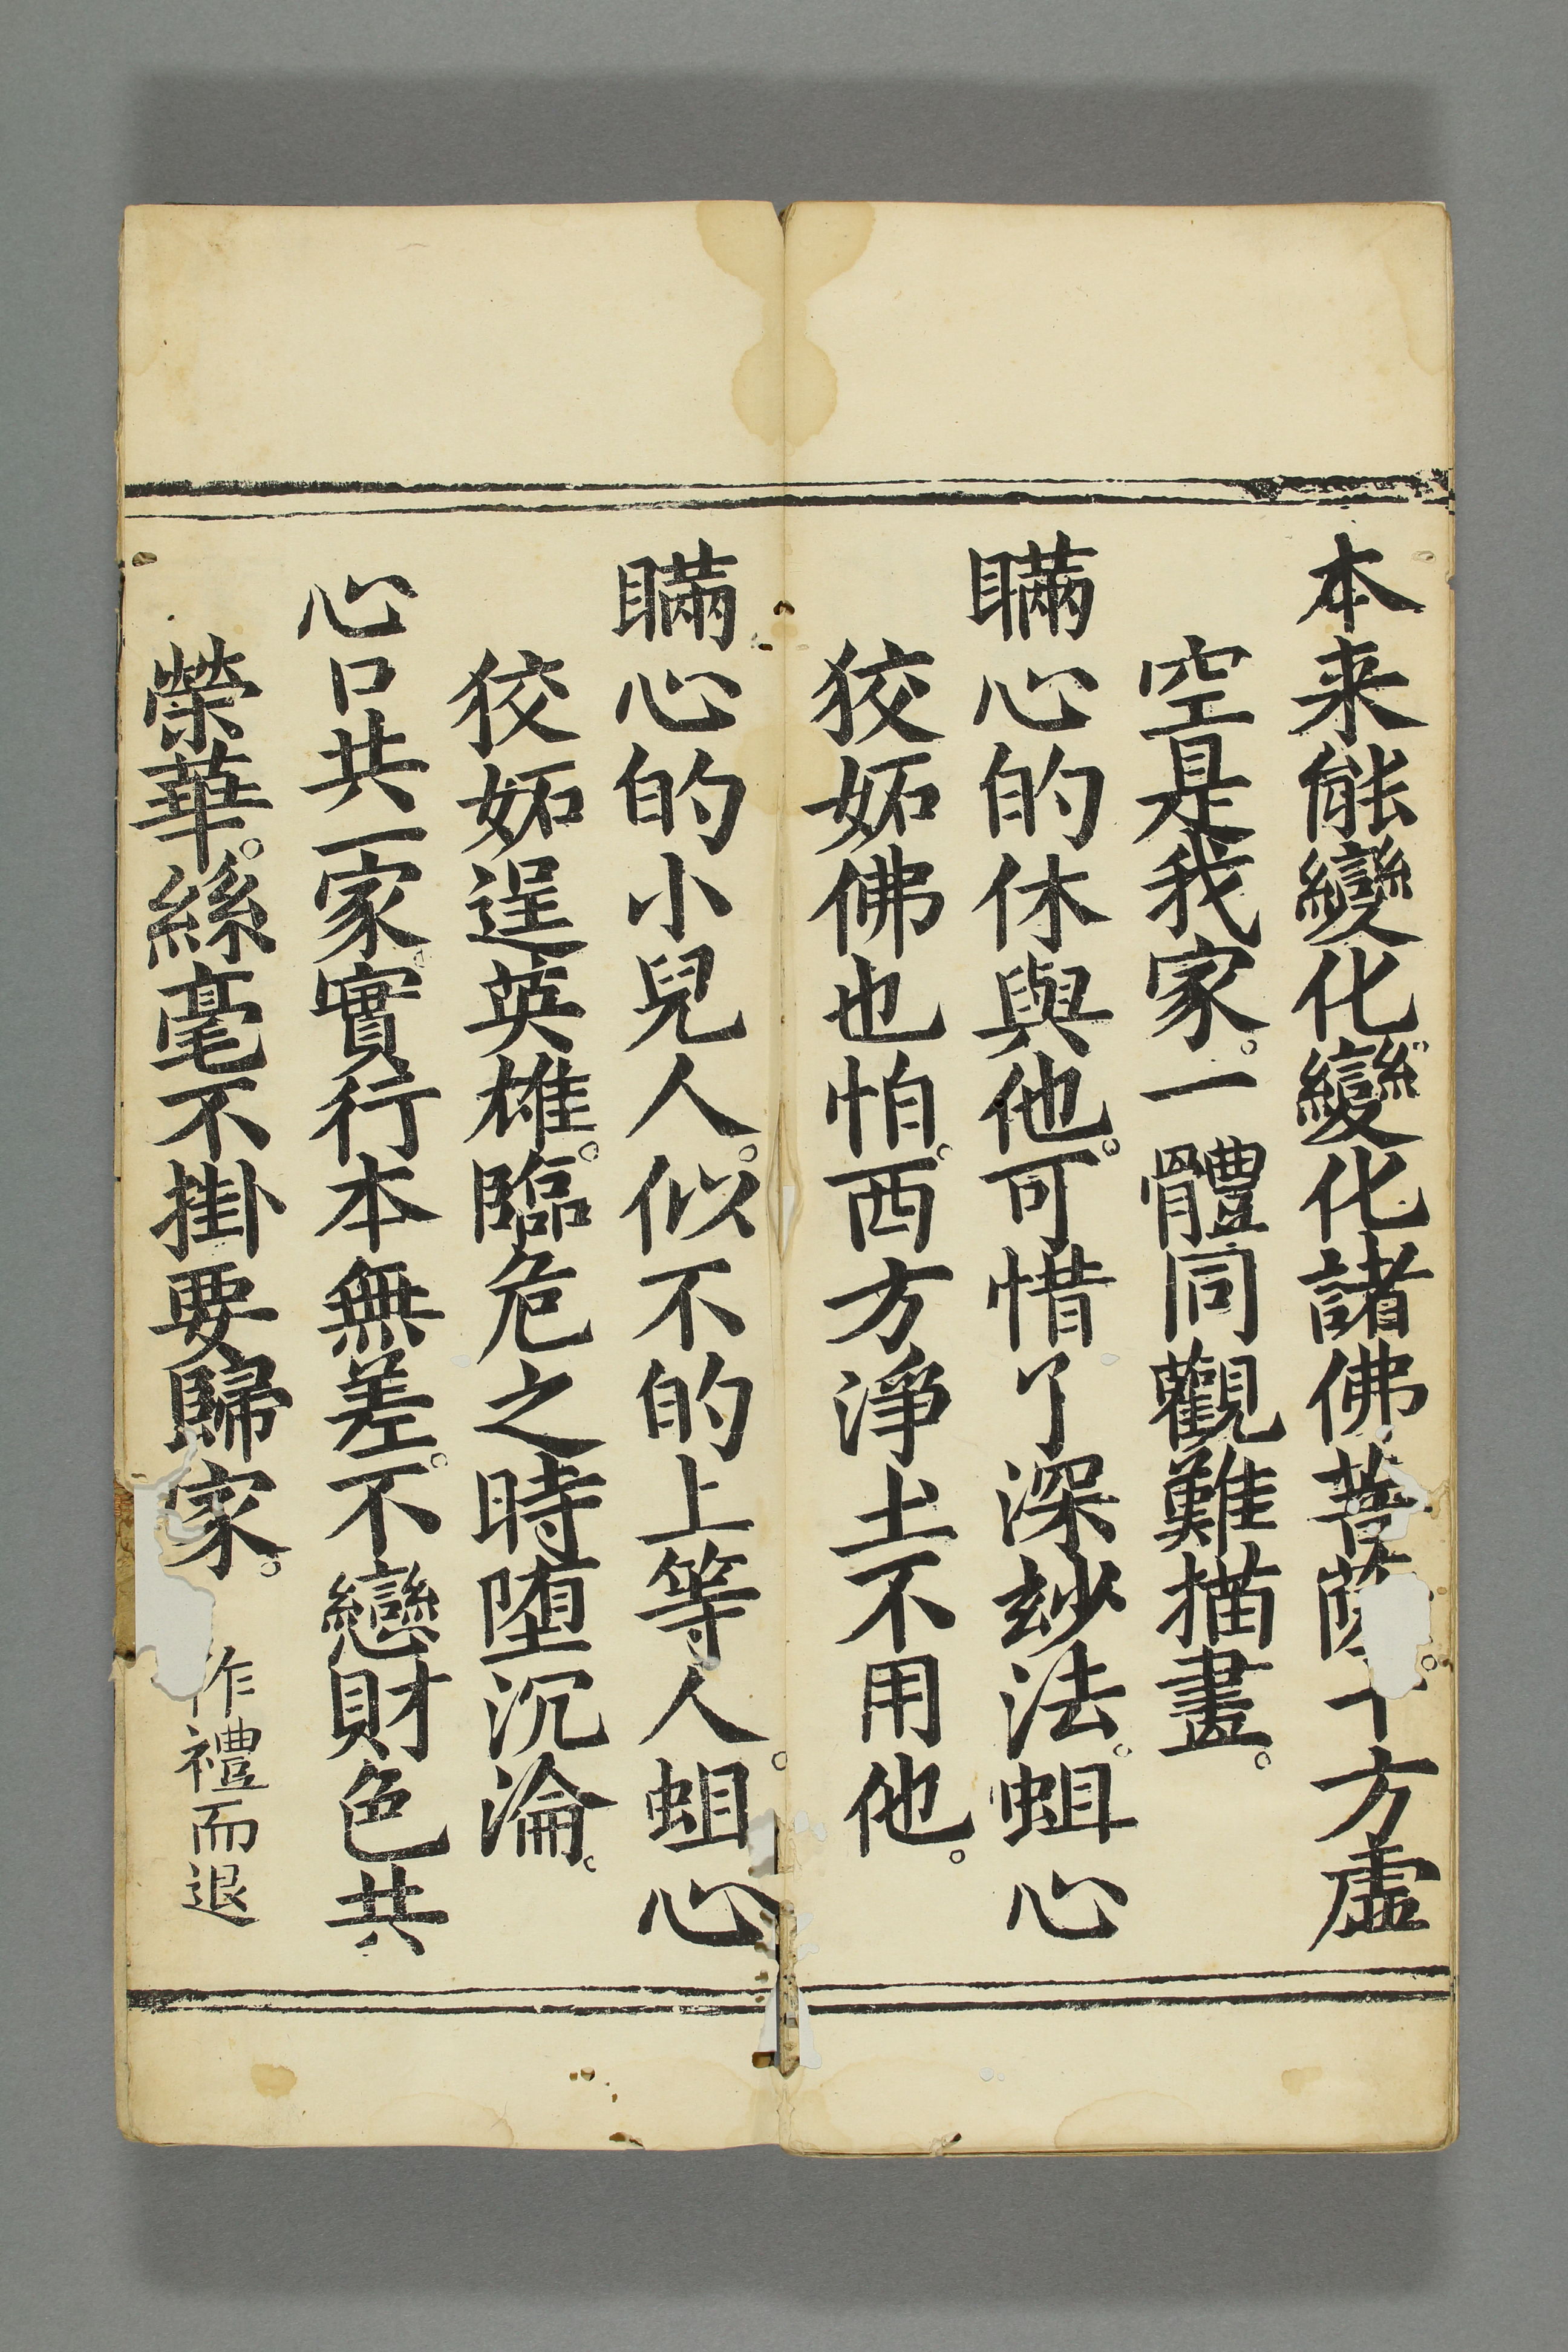 本来能變化變化諸佛菩薩。十方虛
空是我家。一體同觀難描畫。
瞞心的休與他。可惜了深玅法。蛆心
狡妬佛也怕。西方淨土不用他。
瞞心的小兒人。似不的上等人。蛆心
狡妬逞英雄。臨危之時堕沉淪。
心口共一家。實行本無差。不戀財色共
榮華。絲毫不掛要歸家。 作禮而退